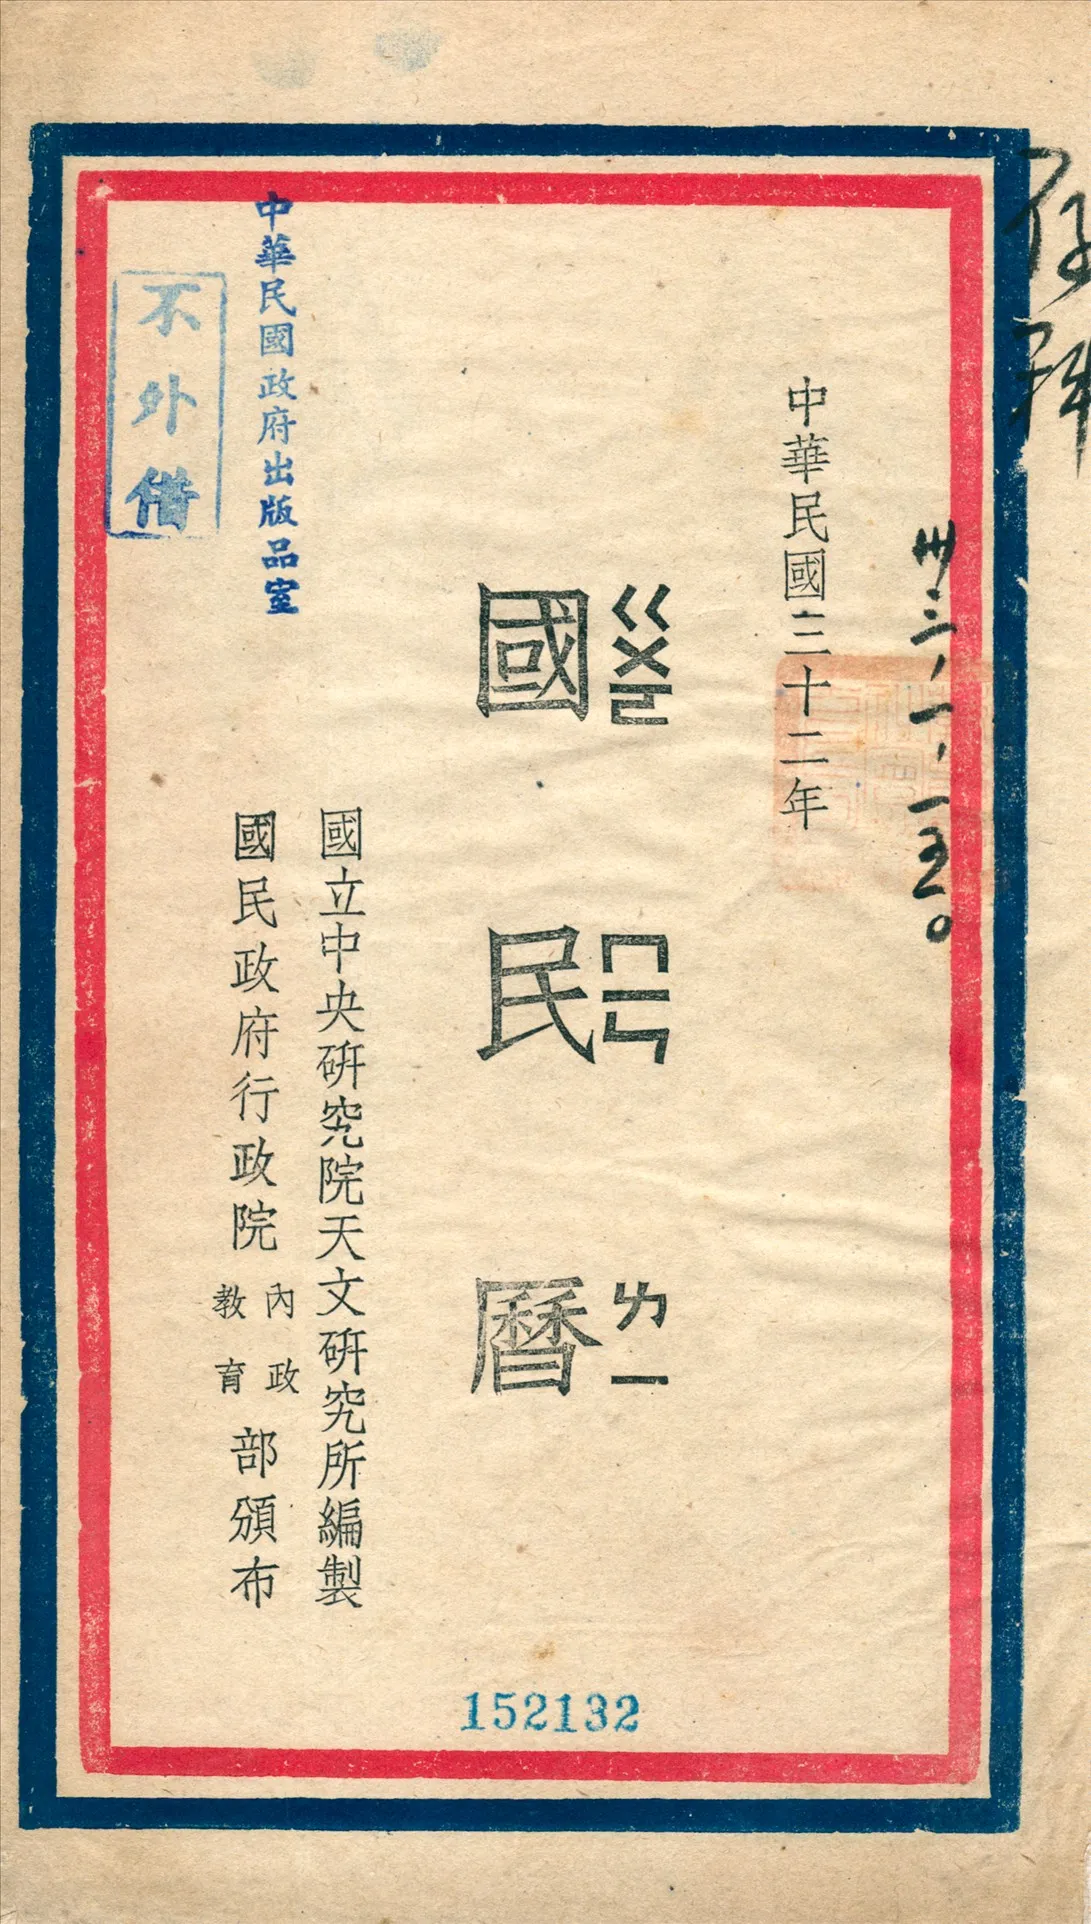 存
卅三、一、一五。
中華民國三十二年
國民曆
ㄍㄨㄛ ㄇㄧㄣ ㄌㄧ
國立中央研究院天文研究所編製
國民政府行政院內政教育部頒布
中華民國政府出版品室
不外借
152132